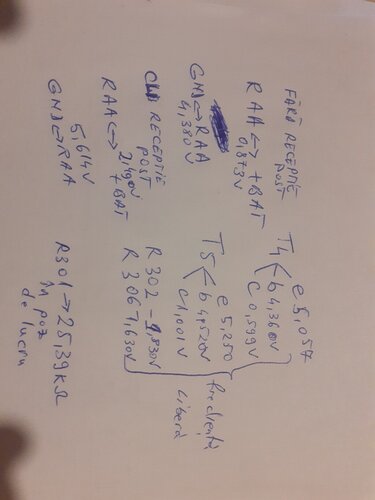 FĂRĂ RECEPȚIE
POST
RAA <-> +BAT
0,873V
GND <-> RAA
4,380V
CU RECEPȚIE
POST
RAA <-> +BAT
2,490V
5,614V
GND <-> RAA
e 5,057
T4 < b 4,360V
C 0,599V
e 5,250
T5 < b 4,520V
c 1,001V
R302 - 1,830V
R306 1,630V
frecvență
liberă
R301 → 25,39KΩ
în poz
de lucru